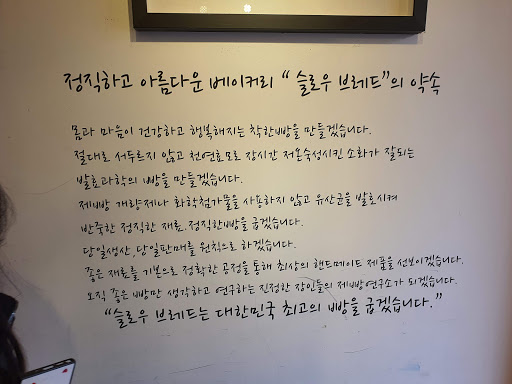 정직하고 아름다운 베이커리 “슬로우 브레드”의 약속
몸과 마음이 건강하고 행복해지는 착한빵을 만들겠습니다.
절대로 서두르지 않고 천연효모로 장시간 저온숙성시킨 소화가 잘되는
발효과학의 빵을 만들겠습니다.
제빵 개량제나 화학첨가물을 사용하지 않고 유산균을 발효시켜
반죽한 정직한 재료. 정직한빵을 굽겠습니다.
당일생산, 당일판매를 원칙으로 하겠습니다.
좋은 재료를 기본으로 정확한 공정을 통해 최상의 핸드메이드 제품을 선보이겠습니다.
오직 좋은 빵만 생각하고 연구하는 진정한 장인들의 제빵연구소가 되겠습니다.
“슬로우 브레드는 대한민국 최고의 빵을 굽겠습니다.”